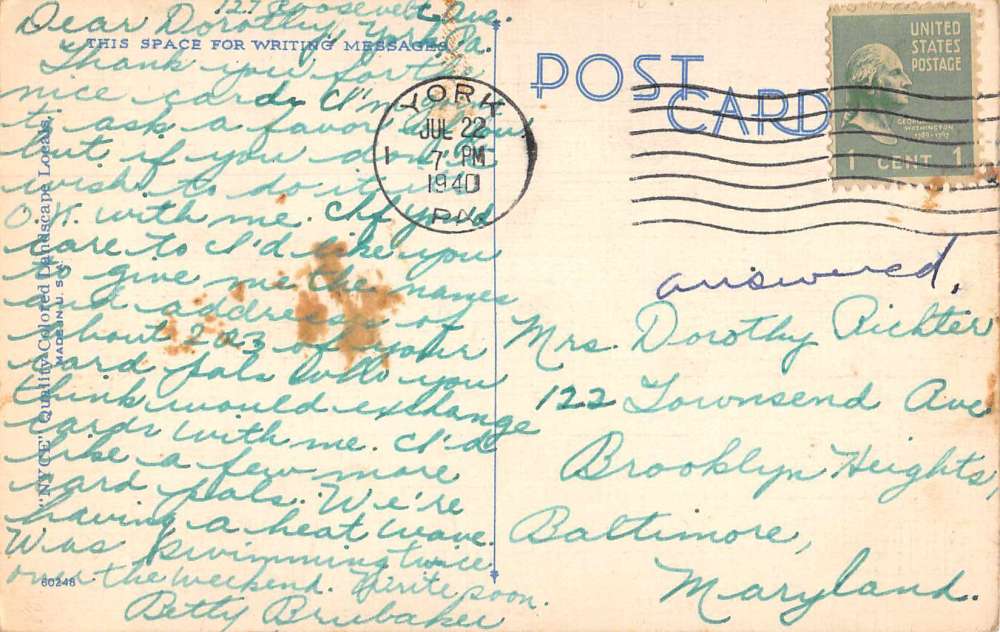 127 Roosevelt Ave.
York, Pa.
Dear Dorothy,
THIS SPACE FOR WRITING MESSAGES
Thank you for the
nice card. I'm going
to ask a favor of you
but if you don't
wish to do it it's
O.K. with me. If you'd
care to I'd like you
to give me the names
and address of
about 2 or 3 of your
card pals who you
think would exchange
cards with me. I'd
like a few more
card pals. We're
having a heat wave.
Was swimming twice
over the weekend. Write soon.
Betty Brubaker
"NYCE" Quality Colored Landscape Locals,
MADE IN U. S. A.
60248
POST CARD
YORK
JUL 22
7 PM
1940
PA.
1
UNITED
STATES
POSTAGE
GEORGE
WASHINGTON
1789-1797
1 CENT 1
answered.
Mrs. Dorothy Richter
122 Townsend Ave
Brooklyn Heights,
Baltimore,
Maryland.